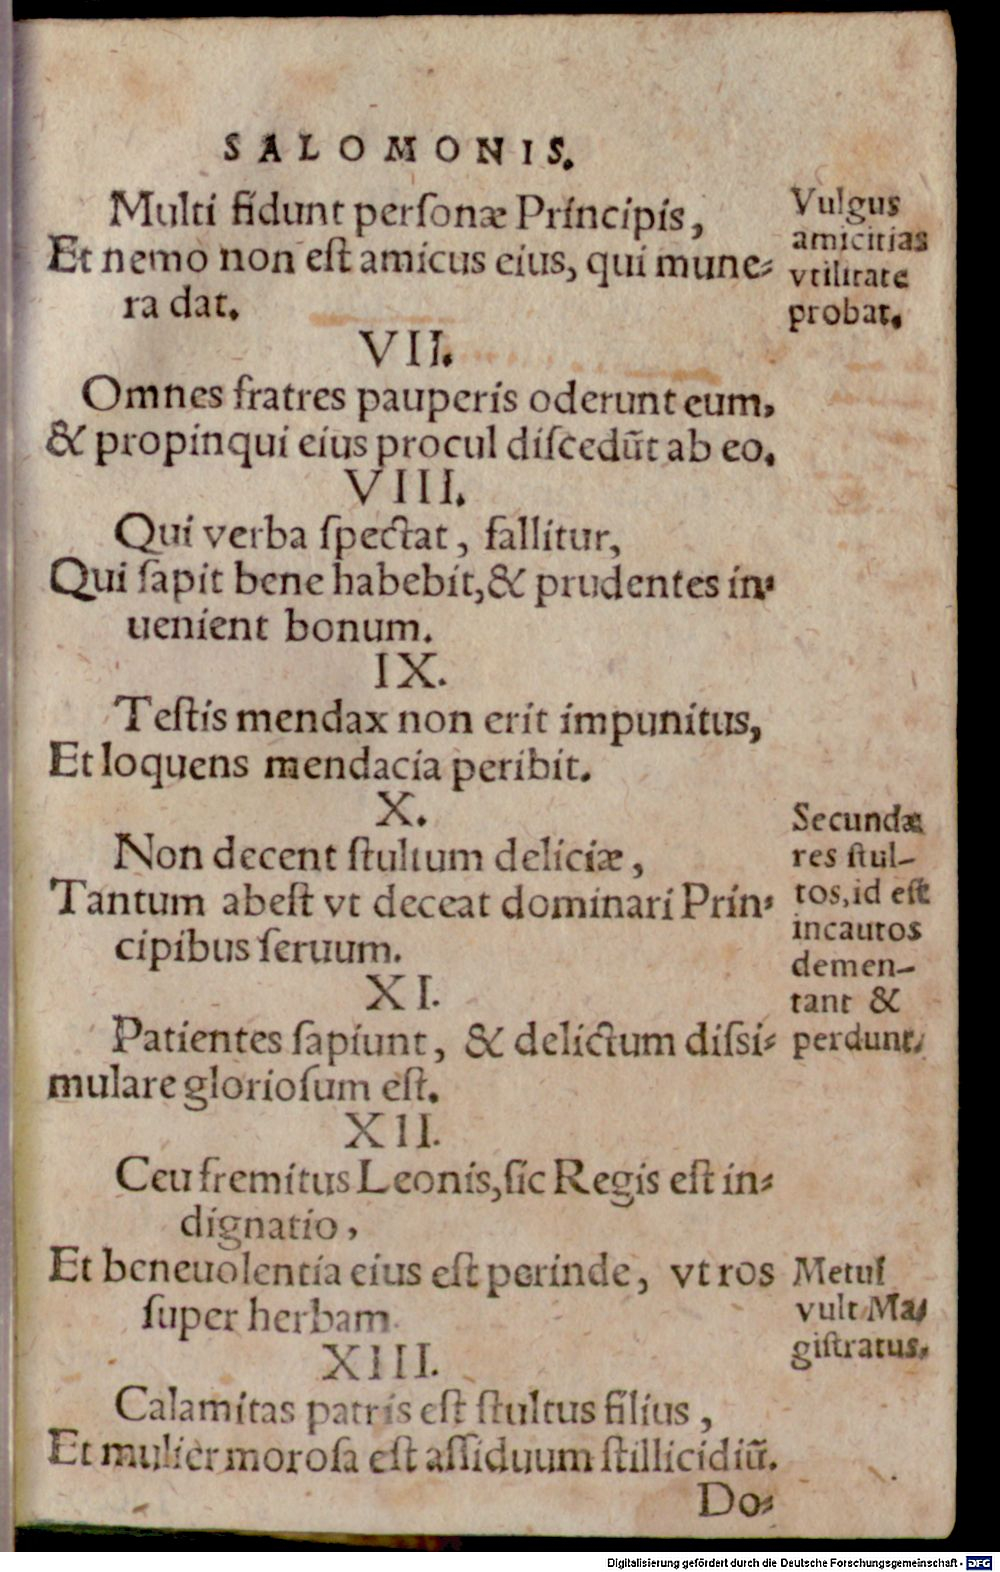 SALOMONIS.
Multi fidunt perſonæ Principis,
Et nemo non eſt amicus eius, qui mune⸗
ra dat.
Vulgus
amicitias
vtilitate
probat.
VII.
Omnes fratres pauperis oderunt eum,
& propinqui eius procul diſcedūt ab eo.
VIII.
Qui verba ſpectat, fallitur,
Qui ſapit bene habebit, & prudentes in⸗
uenient bonum.
IX.
Teſtis mendax non erit impunitus,
Et loquens mendacia peribit.
X.
Non decent ſtultum deliciæ,
Tantum abeſt vt deceat dominari Prin⸗
cipibus ſeruum.
Secundæ
res ſtul-
tos, id eſt
incautos
demen-
tant &
perdunt.
XI.
Patientes ſapiunt, & delictum diſsi⸗
mulare glorioſum eſt.
XII.
Ceu fremitus Leonis, ſic Regis eſt in⸗
dignatio,
Et beneuolentia eius eſt perinde, vt ros
ſuper herbam.
Metuſ
vult Ma⸗
giſtratus.
XIII.
Calamitas patris eſt ſtultus filius,
Et mulier moroſa eſt aſſiduum ſtillicidiū.
Do⸗
Digitalisierung gefördert durch die Deutsche Forschungsgemeinschaft - DFG